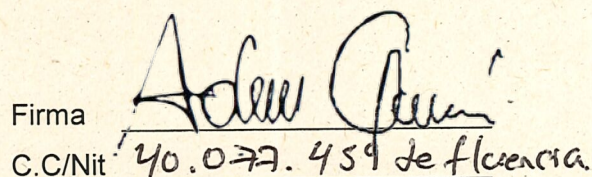 Firma
C.C/Nit 40.077.459 de florencia.